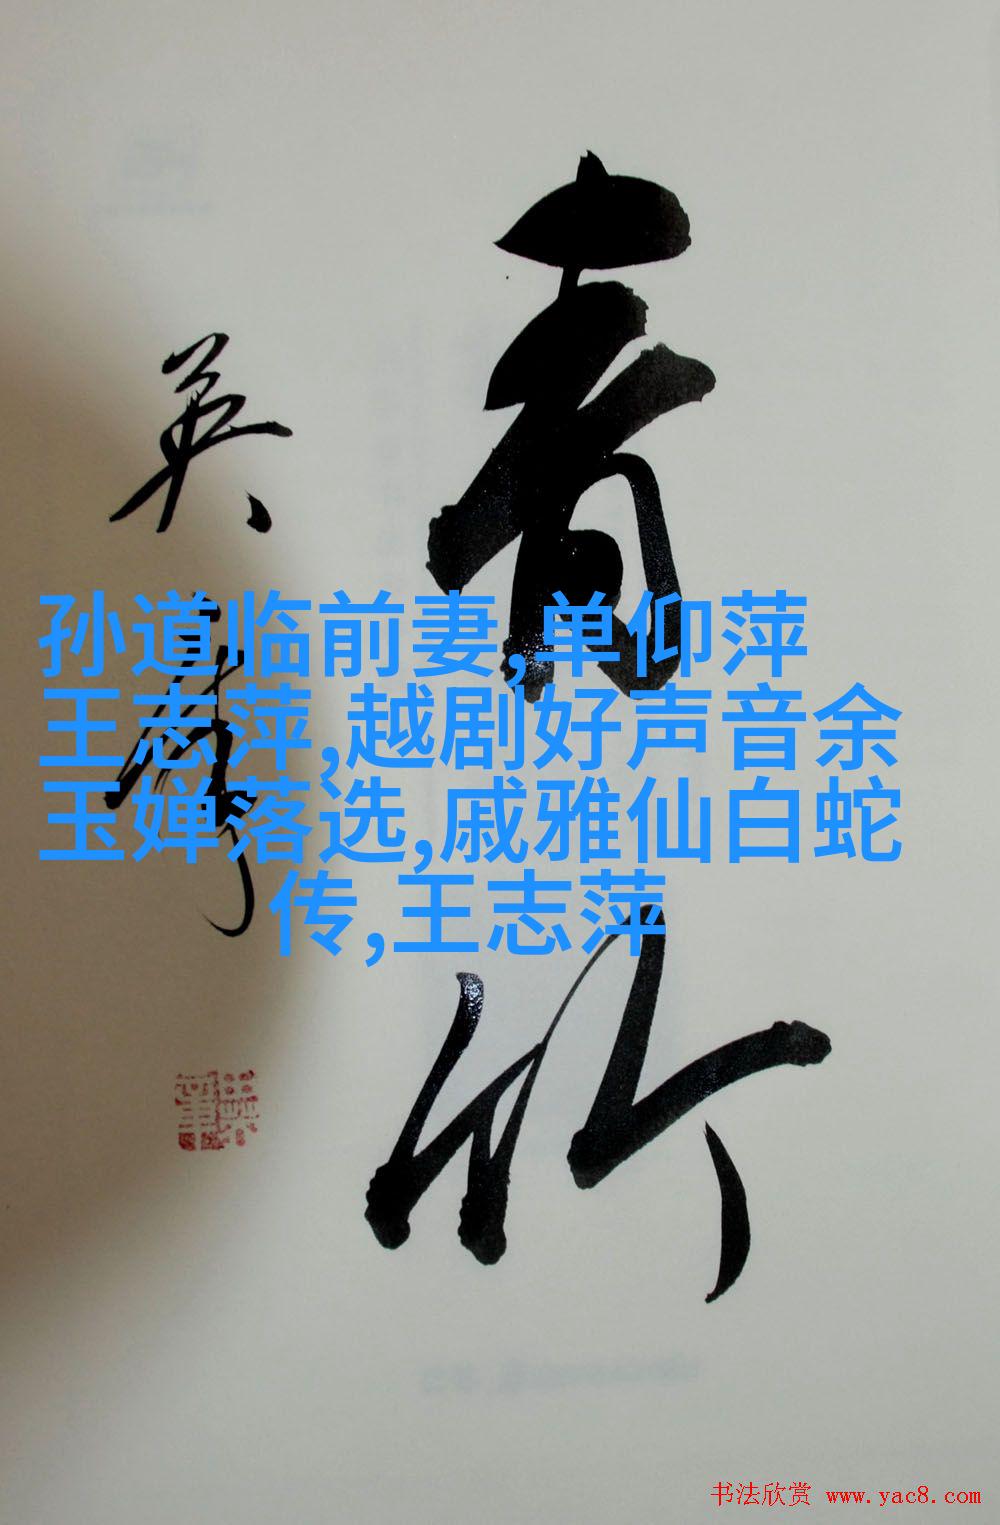 青竹
英
孙道临前妻,单仰萍
王志萍,越剧好声音余
玉婵落选,戚雅仙白蛇
传,王志萍
书法欣赏 www.yac8.com